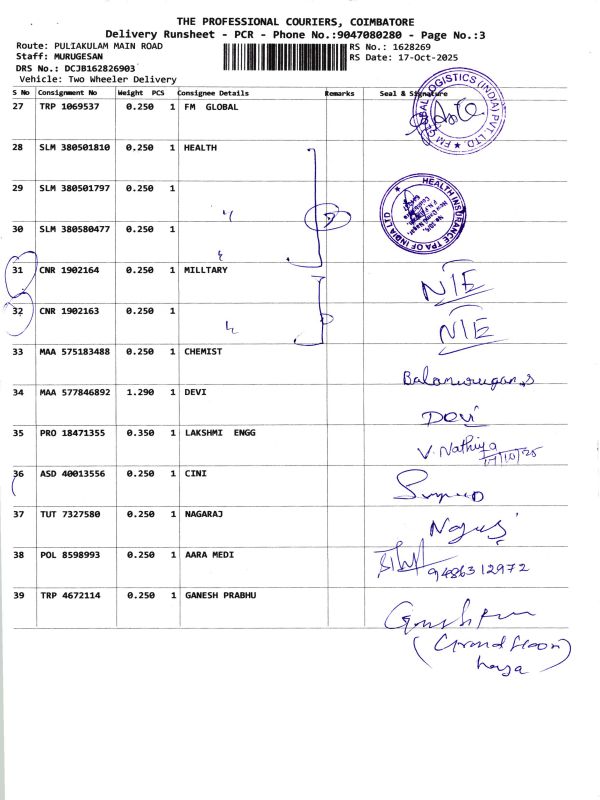 THE PROFESSIONAL COURIERS, COIMBATORE
Delivery Runsheet - PCR - Phone No.:9047080280 - Page No.:3
Route: PULIAKULAM MAIN ROAD RS No.: 1628269
Staff: MURUGESAN RS Date: 17-Oct-2025
DRS No.: DCJB162826903
Vehicle: Two Wheeler Delivery
S No Consignment No Weight PCS Consignee Details Remarks Seal & Signature
27 TRP 1069537 0.250 1 FM GLOBAL
FM GLOBAL LOGISTICS (INDIA) PVT. LTD.
28 SLM 380501810 0.250 1 HEALTH
29 SLM 380501797 0.250 1
HEALTH INSURANCE TPA OF INDIA LTD
30 SLM 380580477 0.250 1
31 CNR 1902164 0.250 1 MILLTARY
NIE
32 CNR 1902163 0.250 1
NIE
33 MAA 575183488 0.250 1 CHEMIST
Balamurugan.s
34 MAA 577846892 1.290 1 DEVI
Devi
35 PRO 18471355 0.350 1 LAKSHMI ENGG
V. Nathiya
17/10/25
36 ASD 40013556 0.250 1 CINI
37 TUT 7327580 0.250 1 NAGARAJ
38 POL 8598993 0.250 1 AARA MEDI
9486312972
39 TRP 4672114 0.250 1 GANESH PRABHU